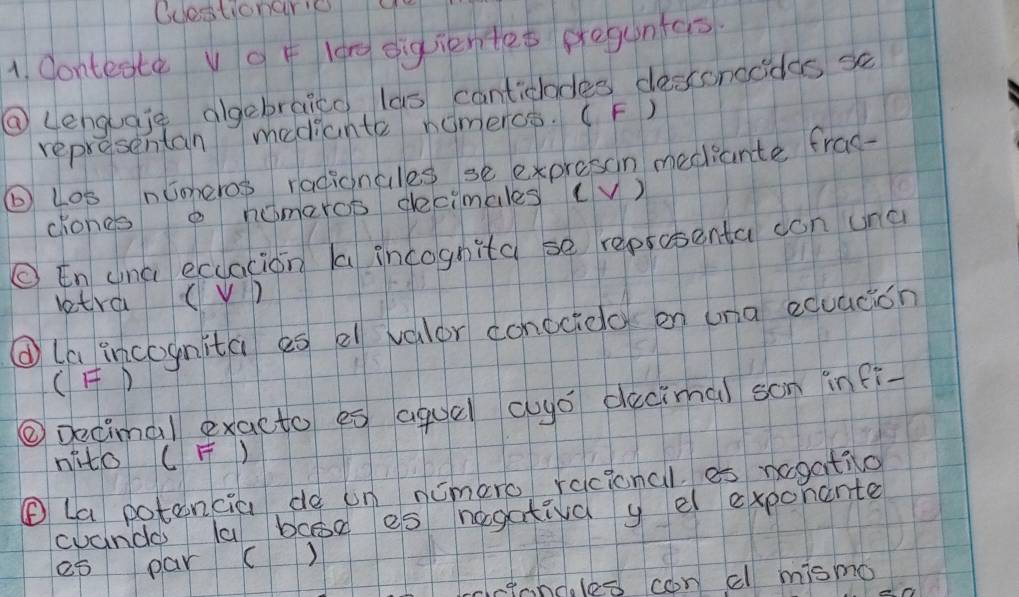 Cuestionario de
1. Conteste V o F las siguientes preguntas.
ⓐ Lenguaje algebraico las cantidades desconocidas se
representan mediante números. ( F )
ⓑ Los números racionales se expresan mediante frac-
ciones o números decimales ( V )
ⓒ En una ecuación la incognita se representa con una
letra ( V )
ⓓ La incognita es el valor conocido en una ecuación
( F )
ⓔ Decimal exacto es aquel cuyó decimal son infi-
nito ( F )
ⓕ La potencia de un número racional. es negativo
cuando la base es negativa y el exponente
es par ( )
con el mismo